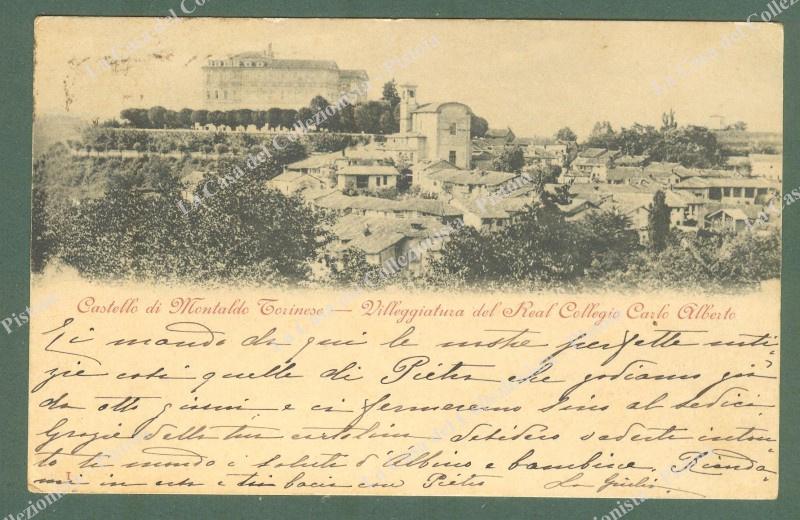 Castello di Montaldo Torinese — Villeggiatura del Real Collegio Carlo Alberto
Ti mando da qui le nostre perfette noti=
zie così quelle di Pietro che godiamo già
da otto giorni e ci fermeremo sino al sedici
Grazie della tua cartolina desidero vederti intan
to ti mando i saluti d'Albino e bambina.
mi in e tu baci con Pietro La Giulia
I
La Casa del Collezionista Pistoia